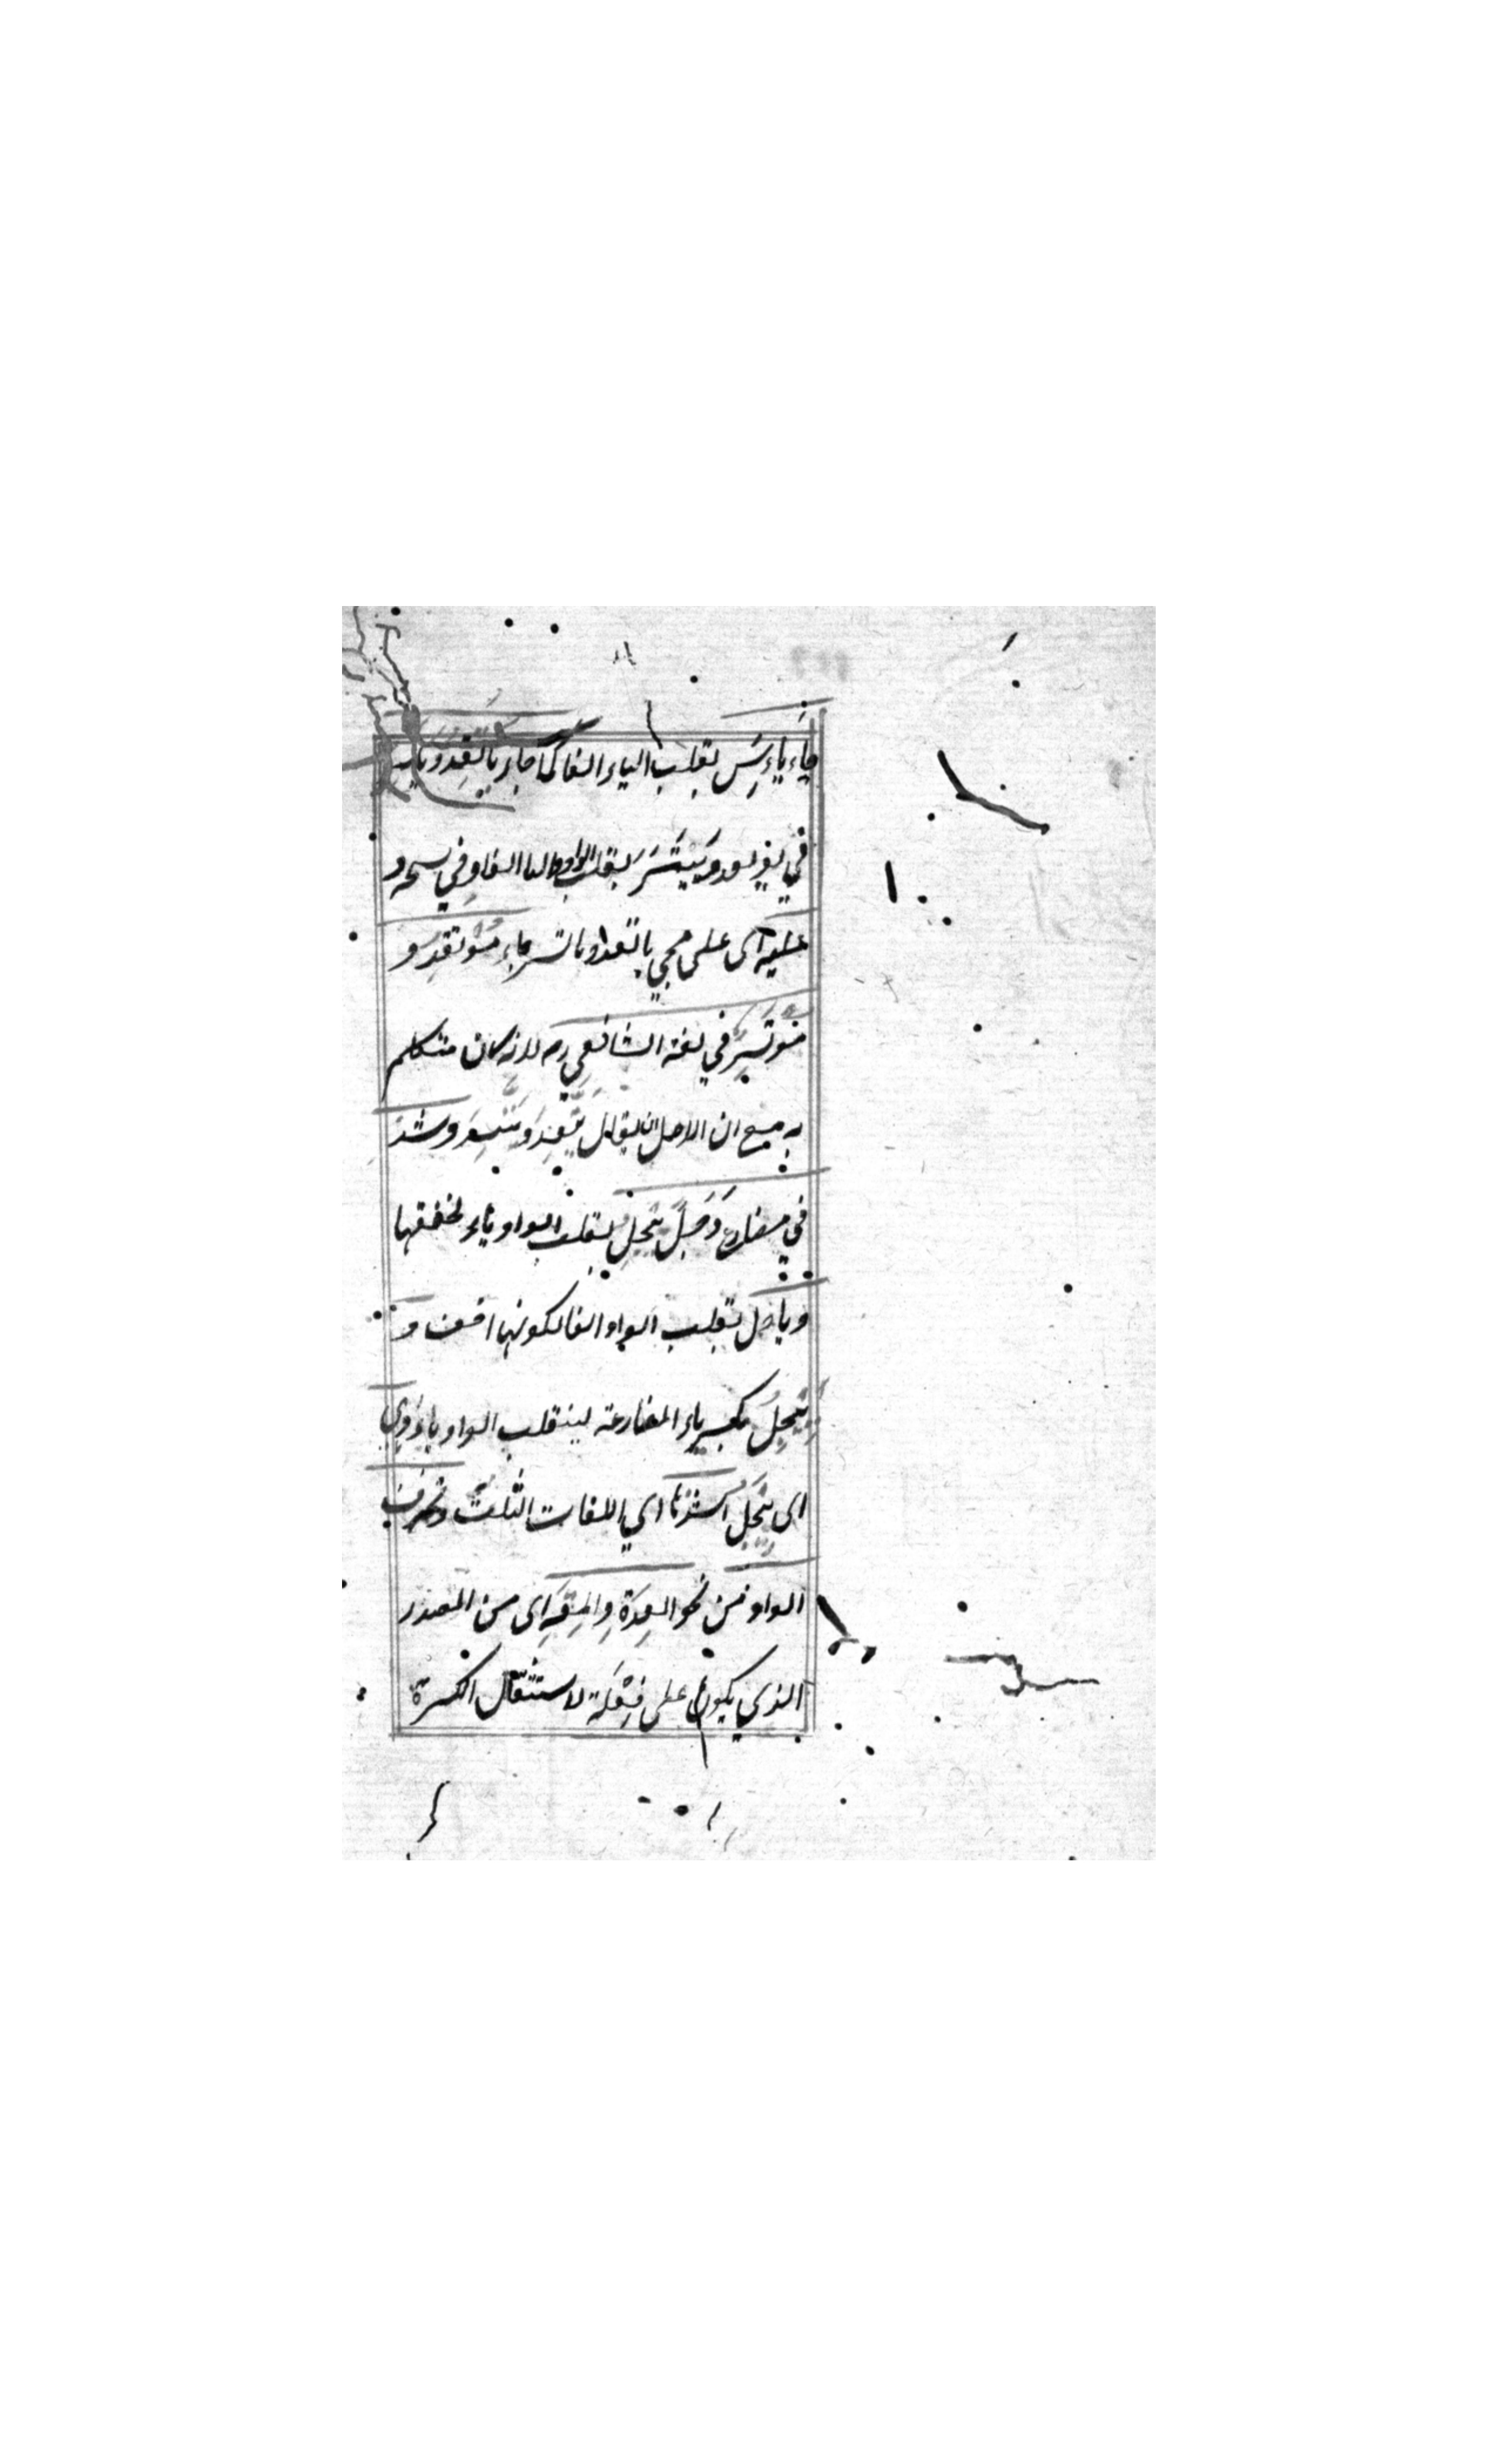 جاء يائس بقلب الياء الفا كما جاء ياتعد وياتسر
في يوتعد وييتسر بقلب الواو والياء الفا وفي نسخة و
عليه اى على مجي ياتعد وياتسر جاء موتعد و
موتسر في لغة الشافعي رح لانه كان متكلم
به مع ان الاصل ان يقال متعد و متسر وشذ
في مضارع وجل ييجل بقلب الواو ياء لخفتها
وياجل بقلب الواو الفا لكونها اخف و
ييجل بكسر ياء المضارعة لينقلب الواو ياء وهي
اى ييجل اشذها اي اللغات الثلث وتحذف
الواو من نحو العدة والمقة اى من المصدر
الذي يكون على فعلة لاستثقال الكسرة